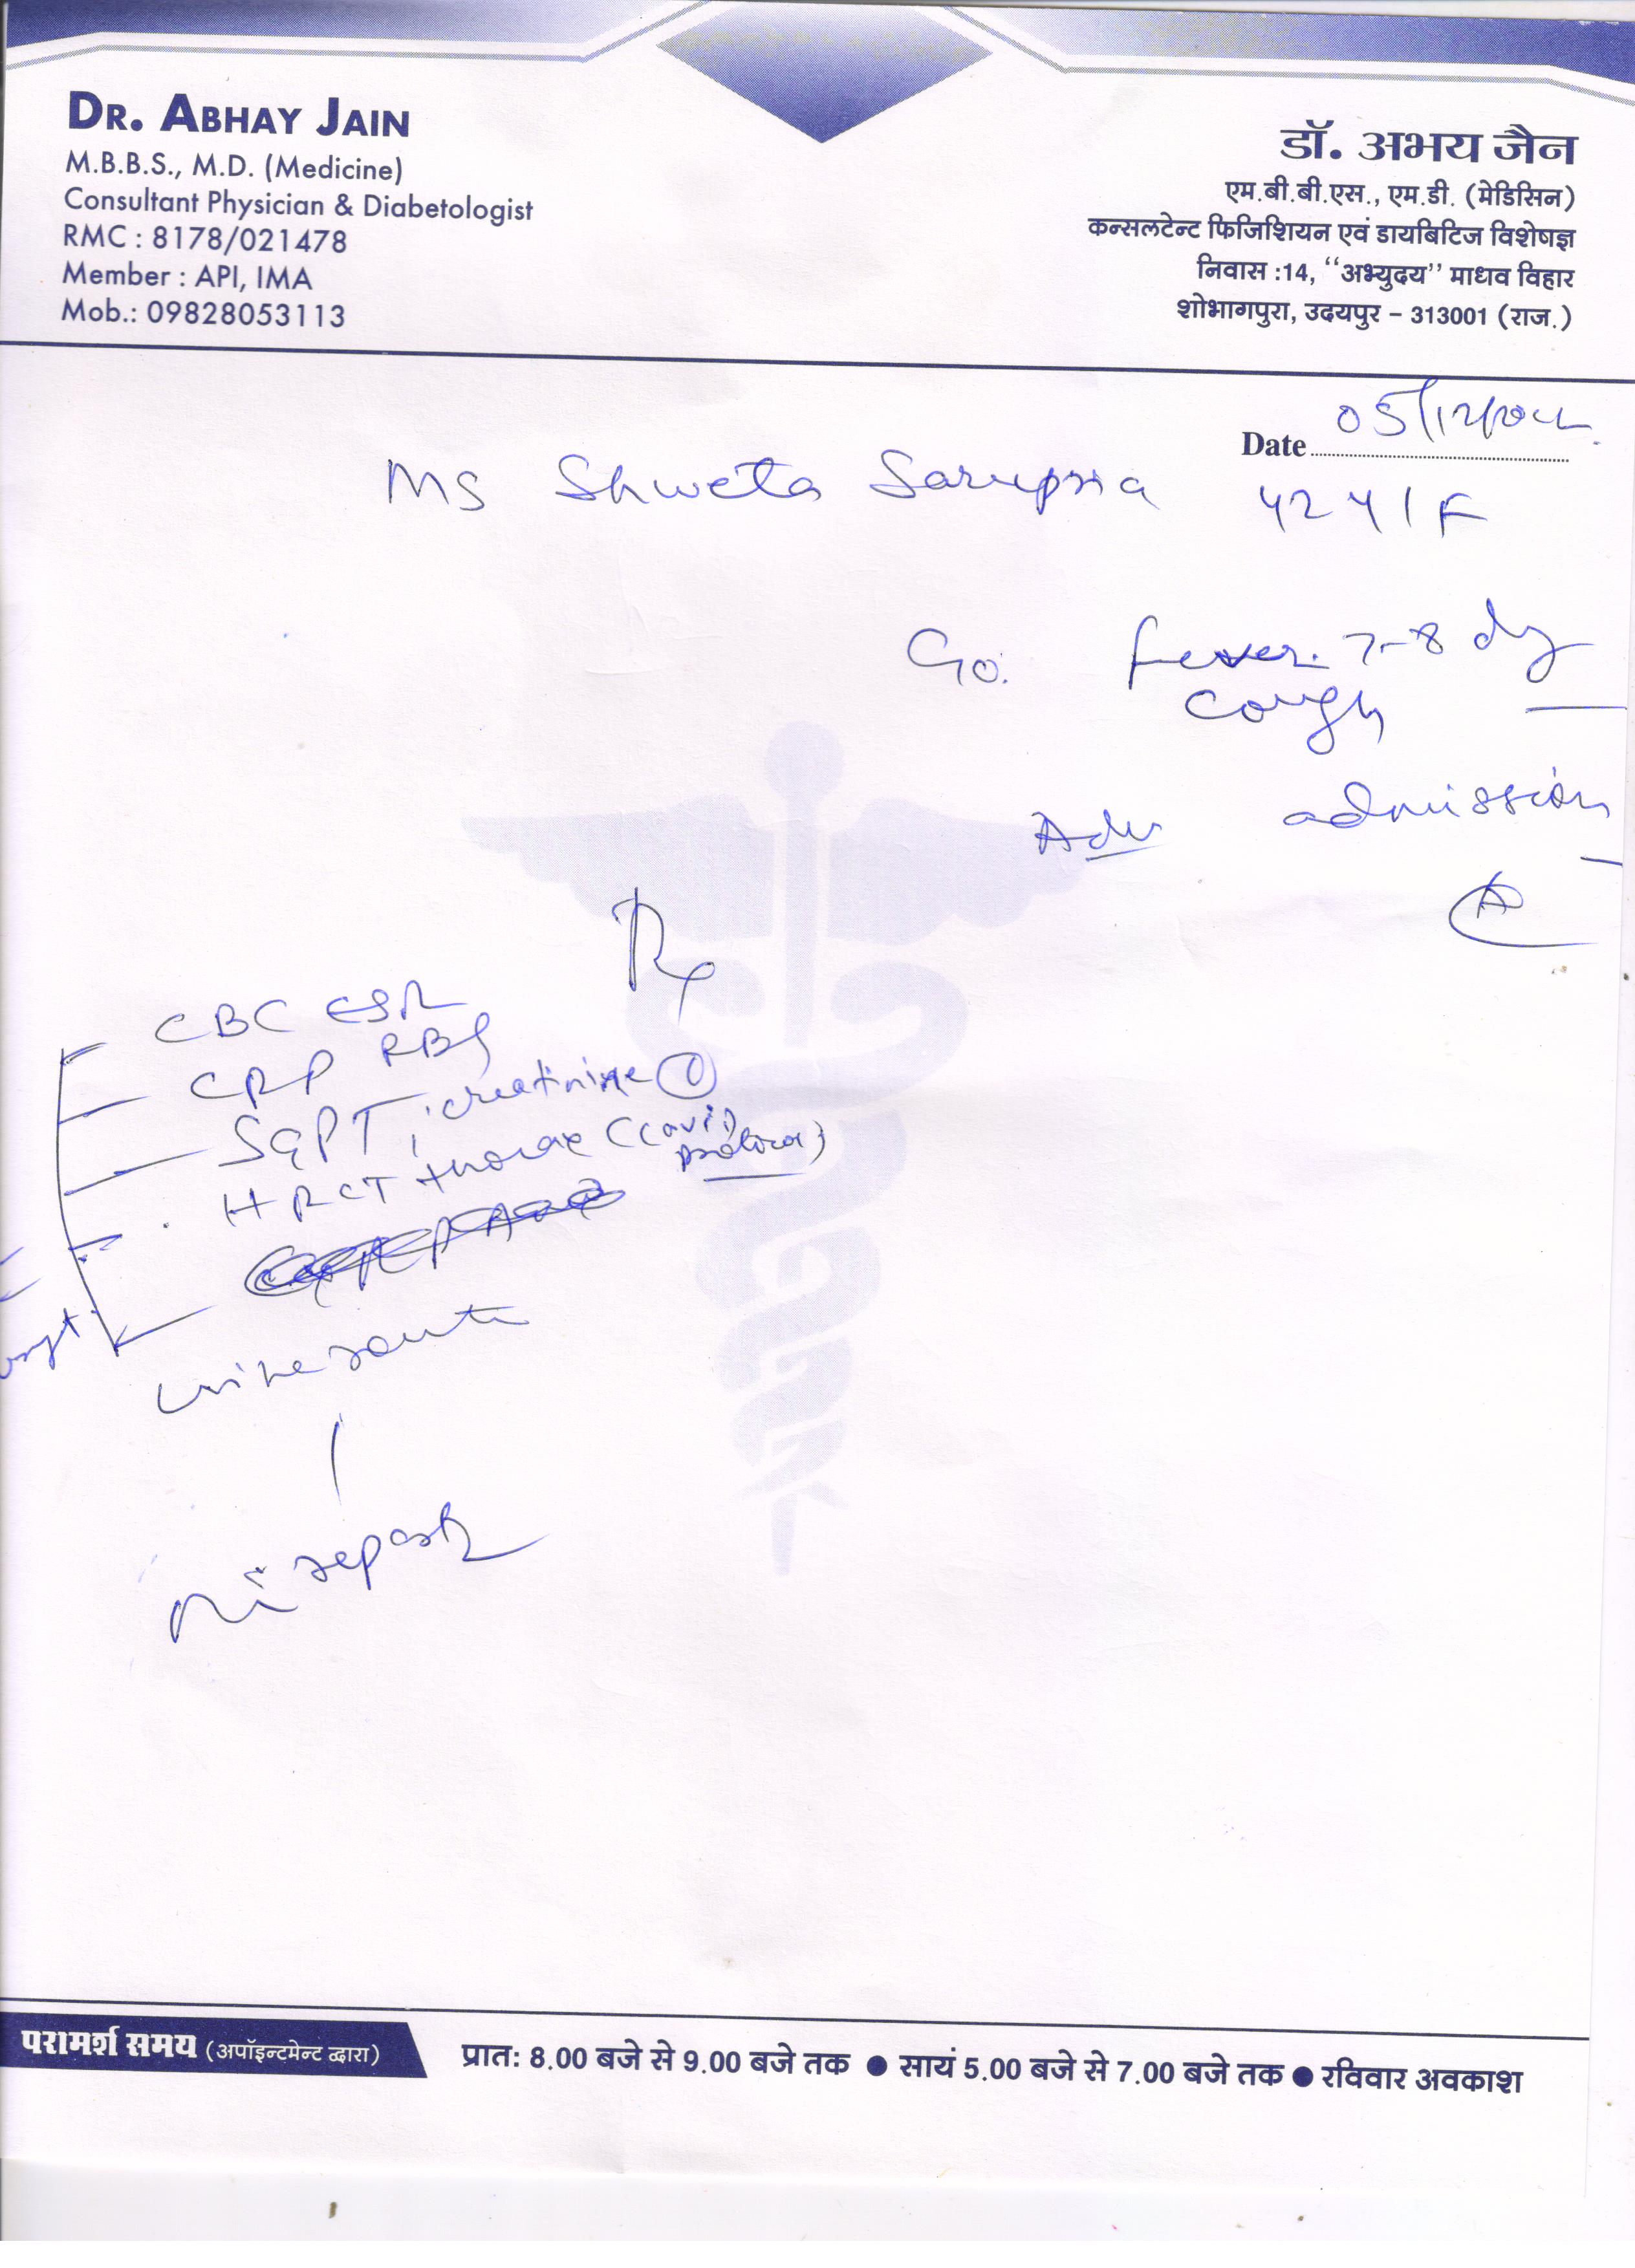 DR. ABHAY JAIN
M.B.B.S., M.D. (Medicine)
Consultant Physician & Diabetologist
RMC : 8178/021478
Member : API, IMA
Mob.: 09828053113
डॉ. अभय जैन
एम.बी.बी.एस., एम.डी. (मेडिसिन)
कन्सलटेन्ट फिजिशियन एवं डायबिटिज विशेषज्ञ
निवास :14, ‘‘अभ्युदय’’ माधव विहार
शोभागपुरा, उदयपुर – 313001 (राज.)
Date 05/12/
Ms Shweta Sarupria 42 Y / F
C/o. fever. 7-8 dy
cough
Adv admission
Rx
CBC ESR
CRP RBS
SGPT, creatinine
HRCT thorax (Covid
protocol)
urine
परामर्श समय (अपॉइन्टमेन्ट द्वारा)
प्रात: 8.00 बजे से 9.00 बजे तक ● सायं 5.00 बजे से 7.00 बजे तक ● रविवार अवकाश